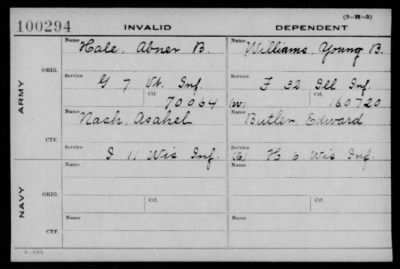 100294 INVALID DEPENDENT (3-H-5)
ARMY
ORIG.
Name Hale, Abner B. Name Williams, Young B.
Service G 7 Vt. Inf. Service F 32 Ill Inf.
Ctf. 70064 (W) Ctf. 160720
CTF.
Name Nash, Asahel Name Butler, Edward
Service I 11 Wis Inf. Service (6) H 6 Wis Inf.
NAVY
ORIG.
Name Name
Service Ctf. Service Ctf.
CTF.
Name Name
Service Service